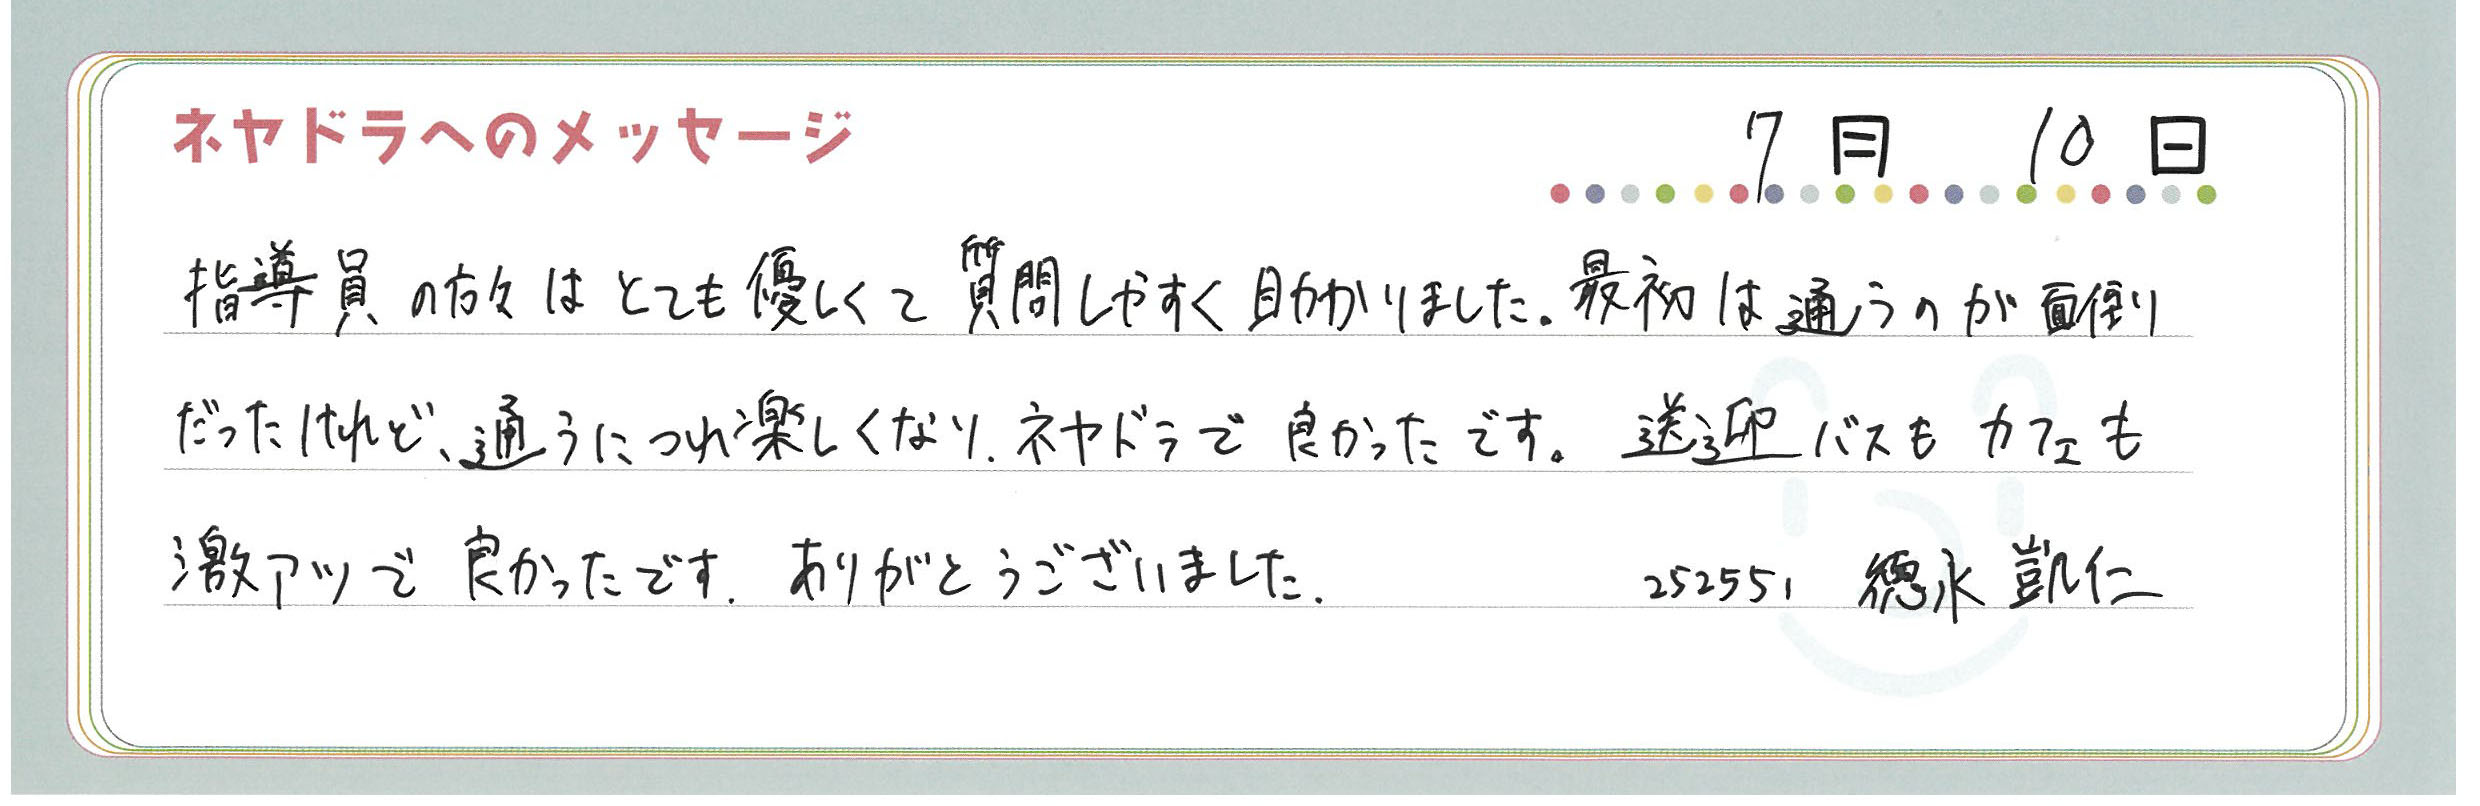 ネヤドラへのメッセージ
7月 10日
指導員の方々はとても優しくて質問しやすく助かりました。最初は通うのが面倒
だったけれど、通うにつれ楽しくなり、ネヤドラで良かったです。送迎バスもカフェも
激アツで良かったです。ありがとうございました。 252551 徳永 凱仁